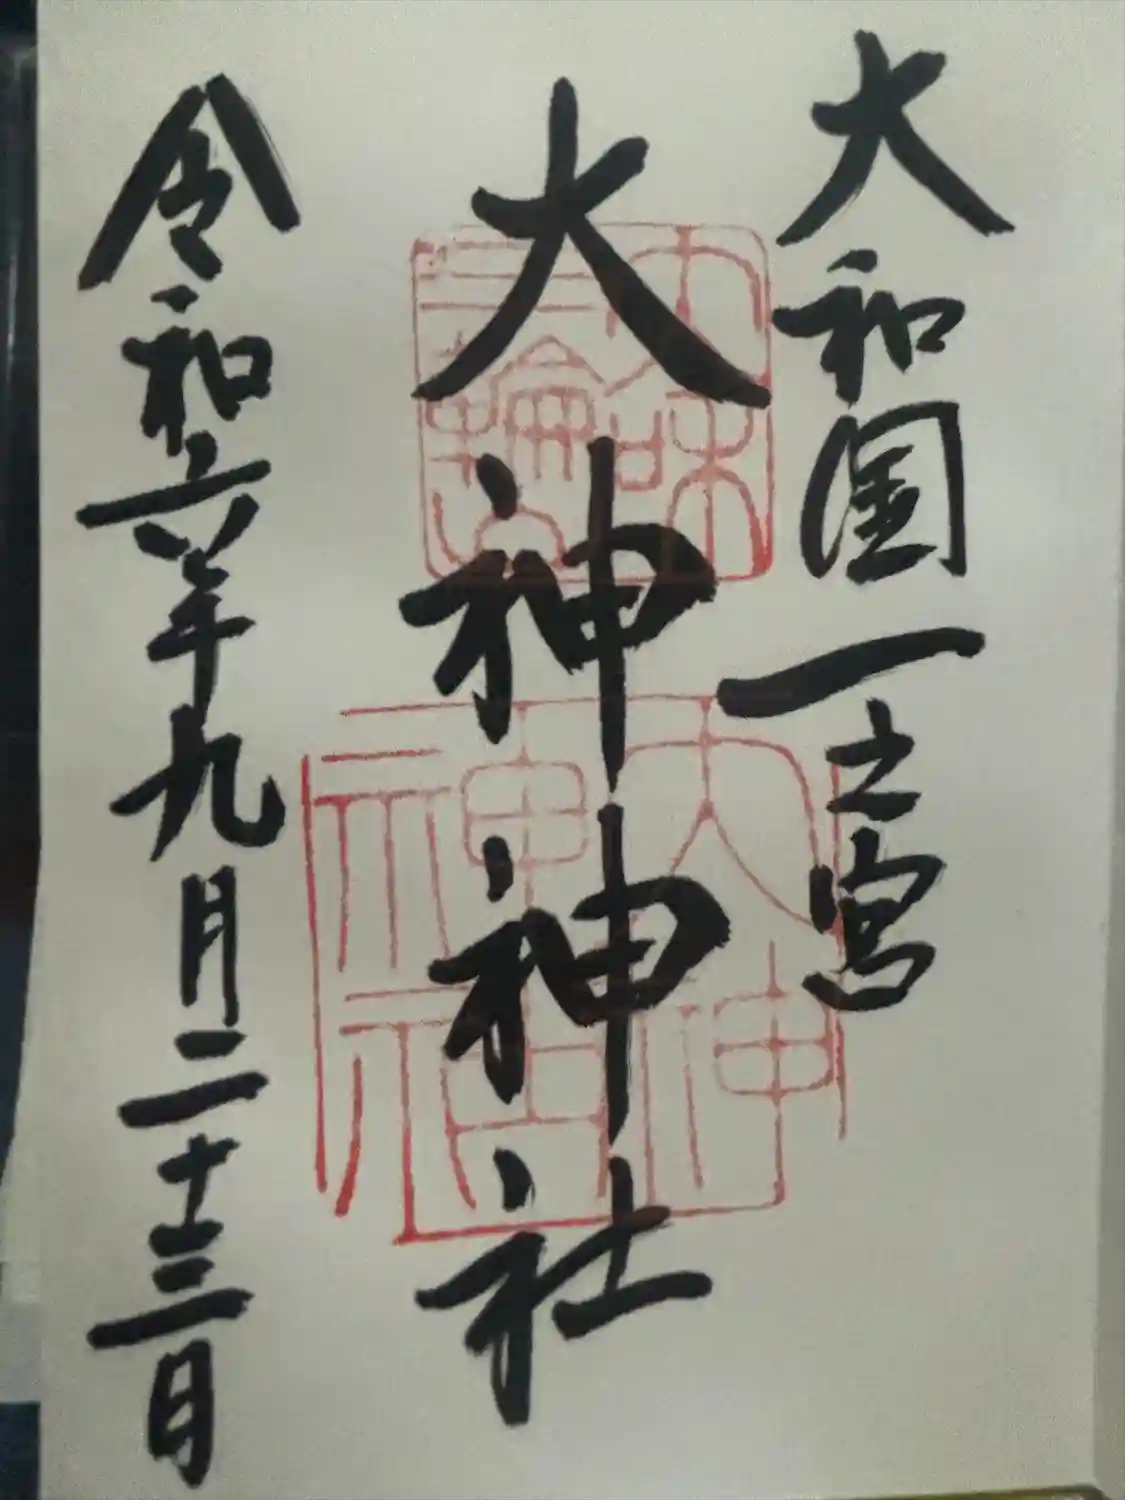 大和国一之宮
大神神社
令和六年九月二十三日